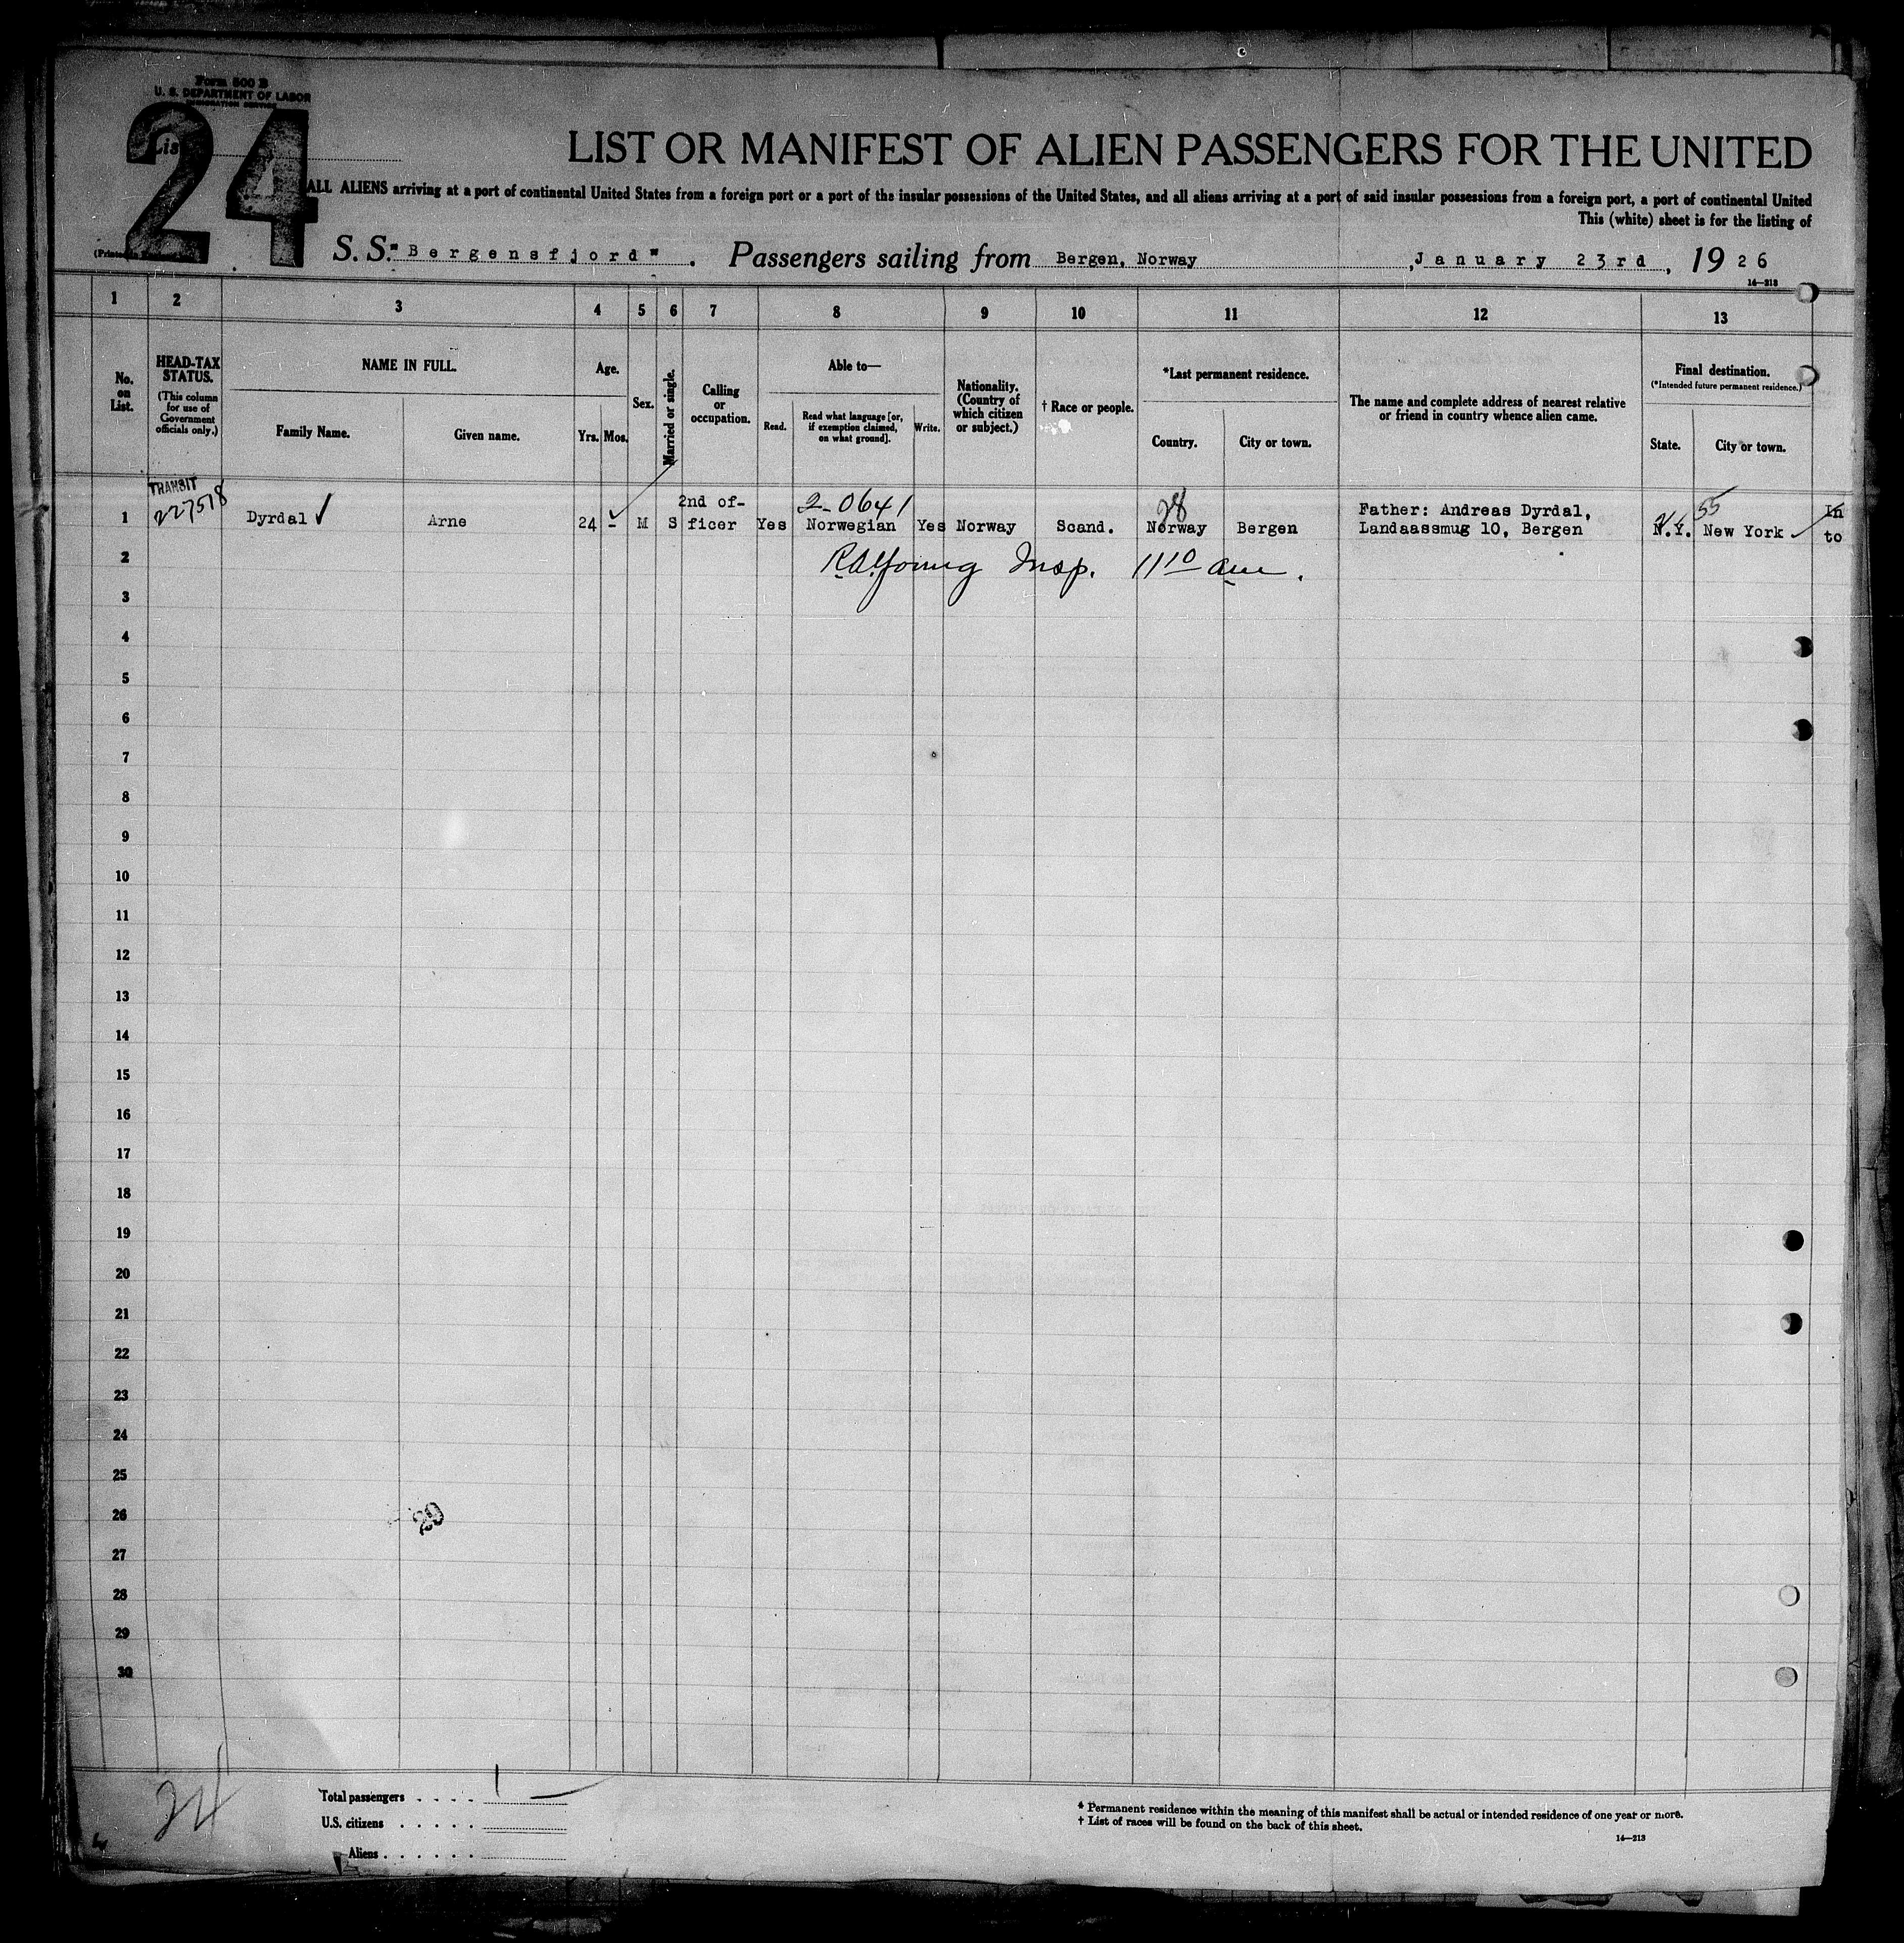 Form 500 B
U. S. DEPARTMENT OF LABOR
IMMIGRATION SERVICE
24
LIST OR MANIFEST OF ALIEN PASSENGERS FOR THE UNITED
ALL ALIENS arriving at a port of continental United States from a foreign port or a port of the insular possessions of the United States, and all aliens arriving at a port of said insular possessions from a foreign port, a port of continental United
This (white) sheet is for the listing of
S. S. "Bergensfjord". Passengers sailing from Bergen, Norway, January 23rd, 1926
14—213
1 2 3 4 5 6 7 8 9 10 11 12 13
No. on List.
HEAD-TAX STATUS.
(This column for use of Government officials only.)
NAME IN FULL.
Family Name.
Given name.
Age.
Yrs. Mos.
Sex.
Married or single.
Calling or occupation.
Able to—
Read.
Read what language [or, if exemption claimed, on what ground].
Write.
Nationality. (Country of which citizen or subject.)
† Race or people.
*Last permanent residence.
Country.
City or town.
The name and complete address of nearest relative or friend in country whence alien came.
Final destination.
(*Intended future permanent residence.)
State.
City or town.
TRANSIT
227518
2-0641
28
55
1 Dyrdal ✓ Arne 24 - M S 2nd officer Yes Norwegian Yes Norway Scand. Norway Bergen Father: Andreas Dyrdal, Landaassmug 10, Bergen N.Y. New York In to
2 Young Insp. 11 10 am.
3
4
5
6
7
8
9
10
11
12
13
14
15
16
17
18
19
20
21
22
23
24
25
26
27
28
29
30
24
Total passengers . . . . 1 —
U.S. citizens . . . . .
Aliens . . . . . .
* Permanent residence within the meaning of this manifest shall be actual or intended residence of one year or more.
† List of races will be found on the back of this sheet.
14—213